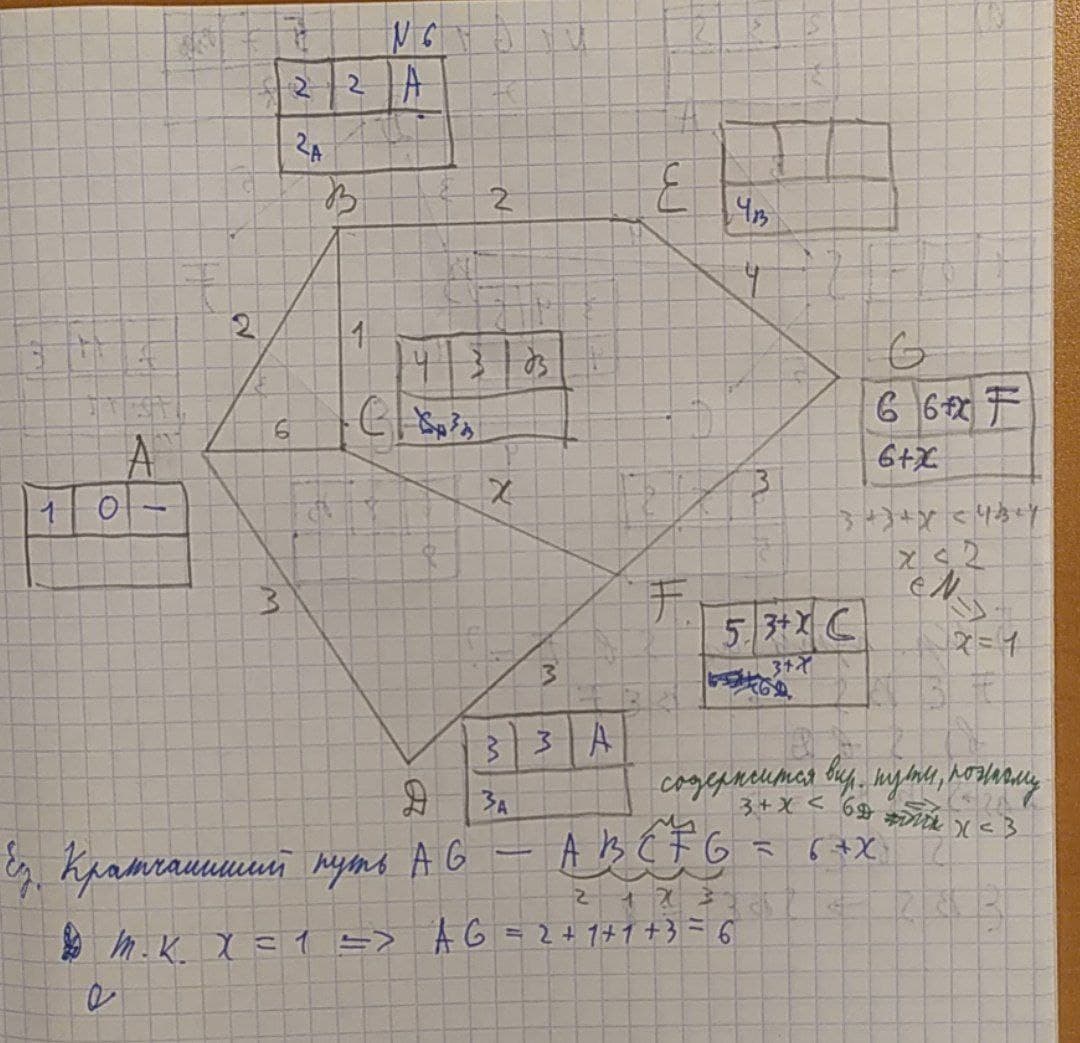 N6
2 2 A
2A
B
2
E
4B
4
2
1
4 3 B
3B
C
G
6 6+x F
6+x
6
A
1 0 –
x
3
3+3+x < 4B+4
x < 2
∈ N
=>
x = 1
F
5 3+x C
3+x
6D
3
3
D
3 3 A
3A
содержится в кр. пути, поэтому
3+x < 6D => x < 3
Ед. Кратчайший путь AG – ABCFG = 6+x
2 1 x 3
т.к. x = 1 => AG = 2+1+1+3 = 6